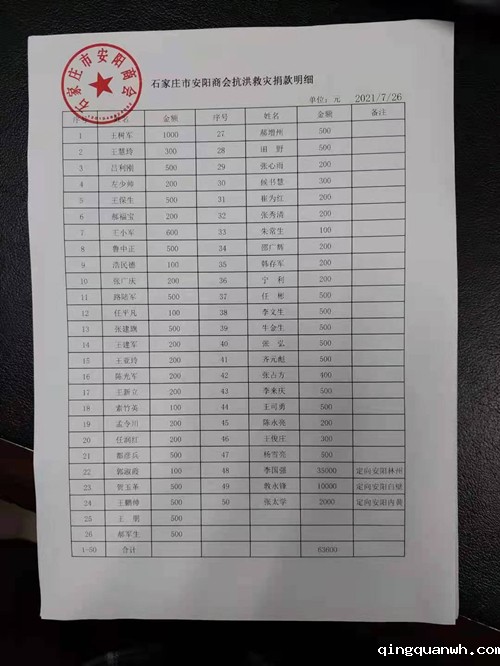 石家庄市安阳商会
石家庄市安阳商会抗洪救灾捐款明细
单位：元 2021/7/26
序 名 金额 序号 姓名 金额 备注
1 王树军 1000 27 郝增州 500
2 王慧玲 300 28 田野 500
3 吕利刚 500 29 张心雨 200
4 左少帅 200 30 侯书慧 300
5 王保生 500 31 崔为红 200
6 郝福宝 200 32 张秀清 200
7 王小军 600 33 朱常生 100
8 鲁中正 500 34 邵广辉 200
9 浩民德 100 35 韩存军 200
10 张广庆 200 36 宁利 200
11 路陆军 500 37 任彬 500
12 任平凡 100 38 李文生 500
13 张建旗 500 39 牛金生 500
14 王建军 200 40 张弘 500
15 王亚玲 200 41 齐元彪 500
16 陈光军 200 42 张占方 400
17 王新立 200 43 李来庆 500
18 索竹英 100 44 王司勇 500
19 孟令川 200 45 陈永亮 200
20 任润红 200 46 王俊庄 300
21 都彦兵 500 47 杨雪亮 500
22 郭淑霞 100 48 李国强 35000 定向安阳林州
23 贺玉苹 500 49 敦永锋 10000 定向安阳白壁
24 王鹏樟 500 50 张太学 2000 定向安阳内黄
25 王 500
26 郝军生 500
1-50 合计 63600
qingquanwh.com